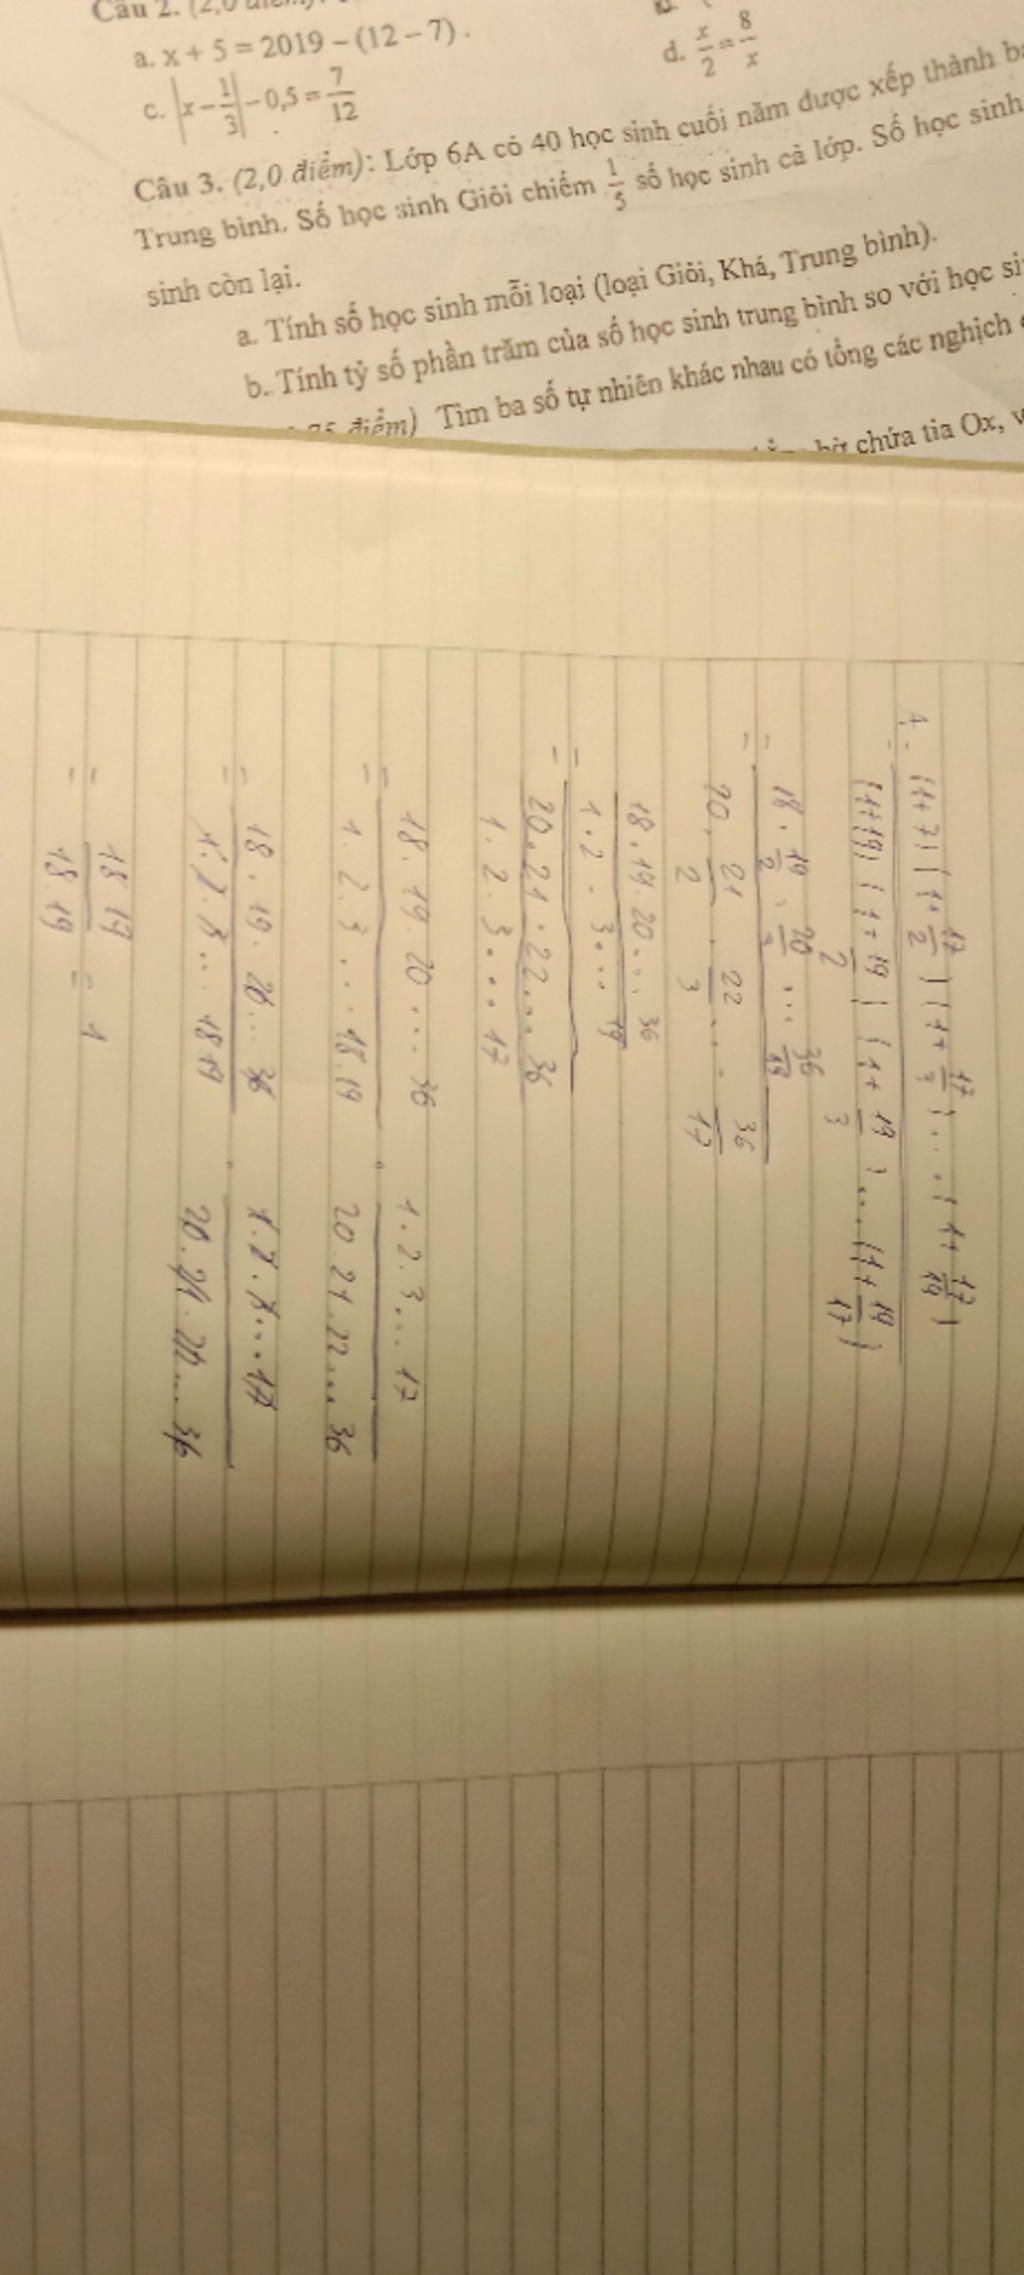 Câu 2. (2,0
a. x + 5 = 2019 – (12 – 7).
d. x/2 = 8/x
c. |x – 1/3| – 0,5 = 7/12
Câu 3. (2,0 điểm): Lớp 6A có 40 học sinh cuối năm được xếp thành
Trung bình. Số học sinh Giỏi chiếm 1/5 số học sinh cả lớp. Số học sinh
sinh còn lại.
a. Tính số học sinh mỗi loại (loại Giỏi, Khá, Trung bình).
b. Tính tỷ số phần trăm của số học sinh trung bình so với học
điểm) Tìm ba số tự nhiên khác nhau có tổng các nghịch
bờ chứa tia Ox,
A = (1+17)(1+17/2)(1+17/3)...(1+17/19)
(1+19)(1+19/2)(1+19/3)...(1+19/17)
= 18 . 19/2 . 20/3 ... 36/19
= 20 . 21/2 . 22/3 ... 36/17
18.19.20... 36
= 1.2.3... 19
= 20.21.22... 36
1.2.3...17
= 18.19.20...36 . 1.2.3...17
= 1.2.3...18.19 20.21.22...36
= 18.19.20...36 . 1.2.3...17
= 1.2.3...18 19 20.21.22...36
= 18 19
= 18.19 = 1